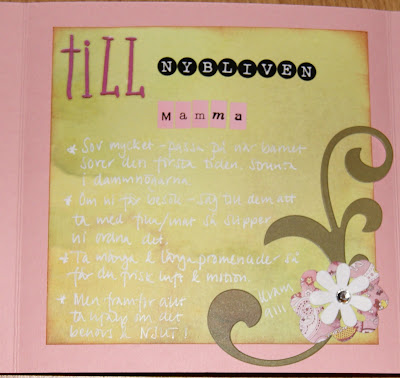 till NYBLIVEN
Mamma
* Sov mycket - passa på när barnet
sover den första tiden, strunta
i dammråttorna.
* Om ni får besök - säg till dem att
ta med fika/mat så slipper
ni ordna det.
* Ta många & långa promenader så
får du frisk luft & motion.
* Men framför allt
ta hjälp om det
behövs & NJUT!
Kram